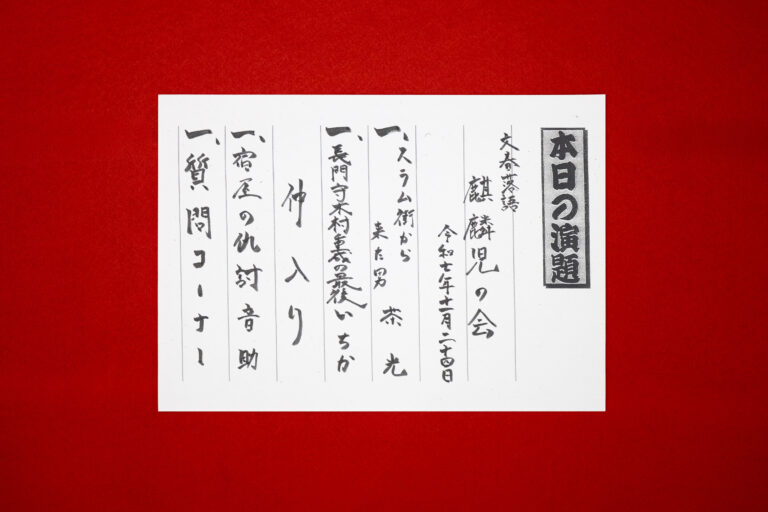 本日の演題
文春落語
麒麟児の会
令和七年十一月二十四日
一、スラム街から
来た男 茶光
一、長門守木村重成の最後 いちか
仲入り
一、宿屋の仇討 音助
一、質問コーナー